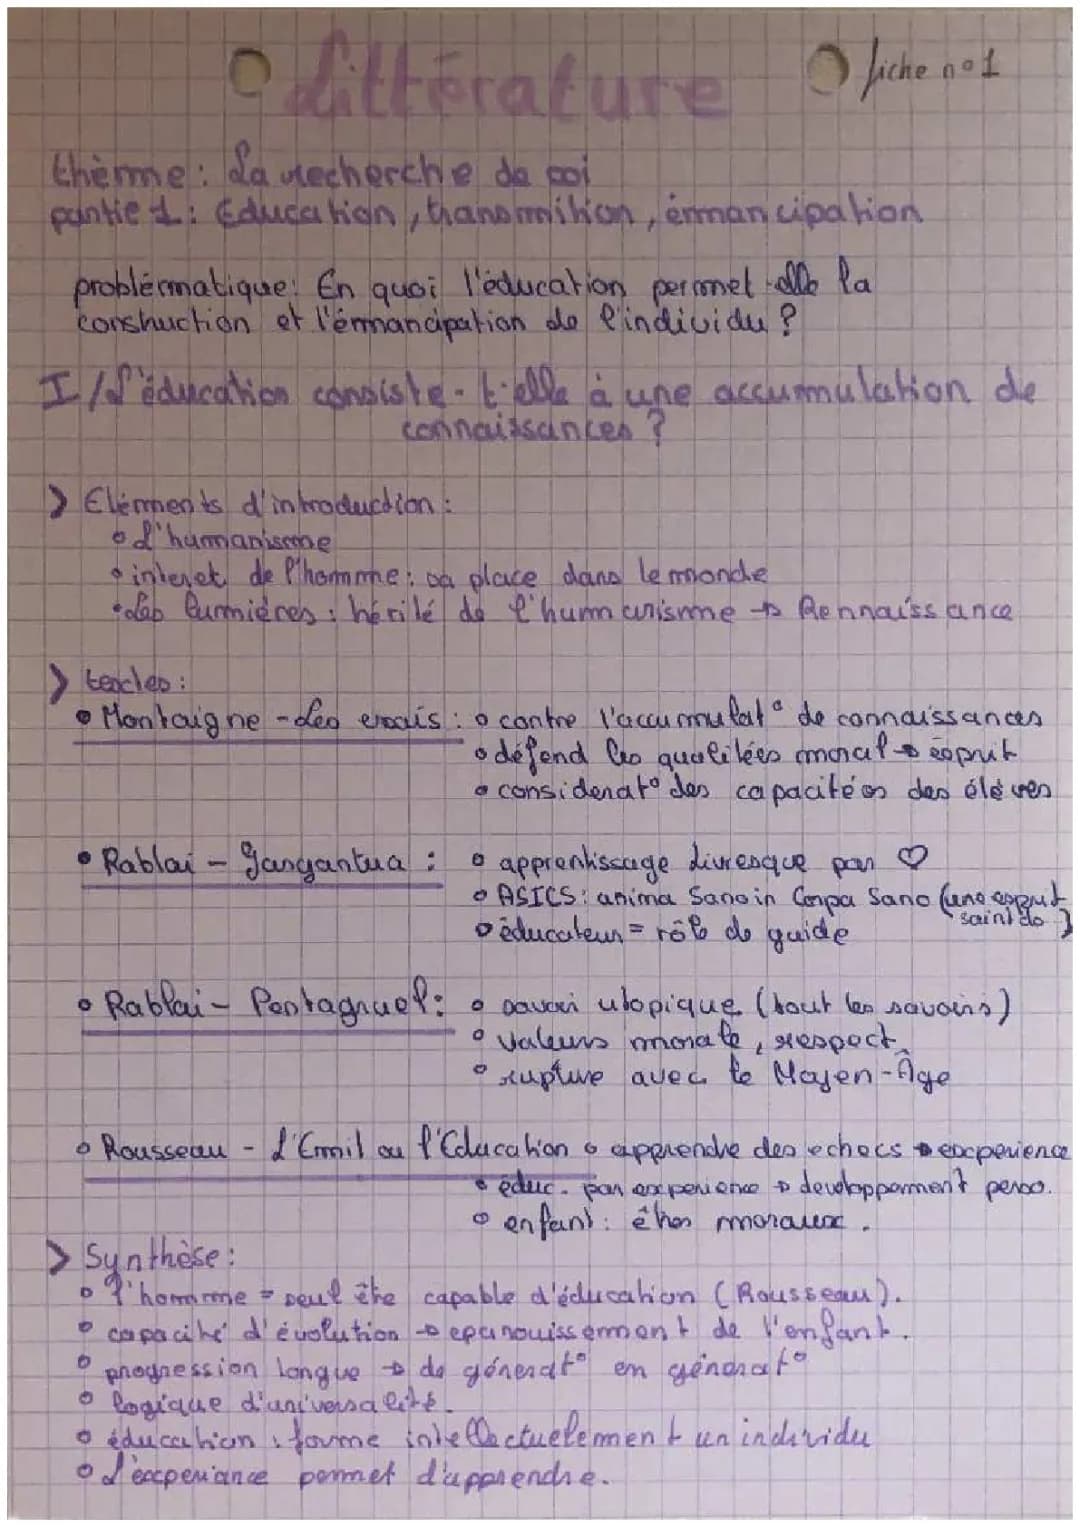 Littérature
fiche n°1
thème : La recherche de soi
partie 1 : Education, transmition, émancipation
problématique : En quoi l'éducation permet-elle la
construction et l'émancipation de l'individu ?
I / L'éducation consiste-t-elle à une accumulation de
connaissances ?
> Eléments d'introduction :
• L'humanisme
• interet de l'homme : sa place dans le monde
• Les lumières : hérité de l'humanisme → Rennaissance
> textes :
• Montaigne - Les essais : • contre l'accumulat° de connaissances
• défend les qualitées moral → esprit
• considerat° des capacitées des élèves
• Rablai - Gargantua : • apprentissage livresque par ♡
• ASICS : anima Sano in Corpa Sano (une esprit
saint do )
• éducateur = rôle de guide
• Rablai - Pentagruel : • savoir utopique (tout les savoirs)
• valeurs morale, respect
• rupture avec le Moyen-Âge
• Rousseau - L'Emil ou l'Education • apprendre des echecs → experience
• éduc. par experience → developpement perso.
• enfant : êtres moraux.
> Synthèse :
• l'homme = seul être capable d'éducation (Rousseau).
• capacité d'évolution → epanouissement de l'enfant.
• progression longue → de génerat° en génerat°
• logique d'universalité.
• éducation : forme intellectuelement un individu
• L'experiance permet d'apprendre.